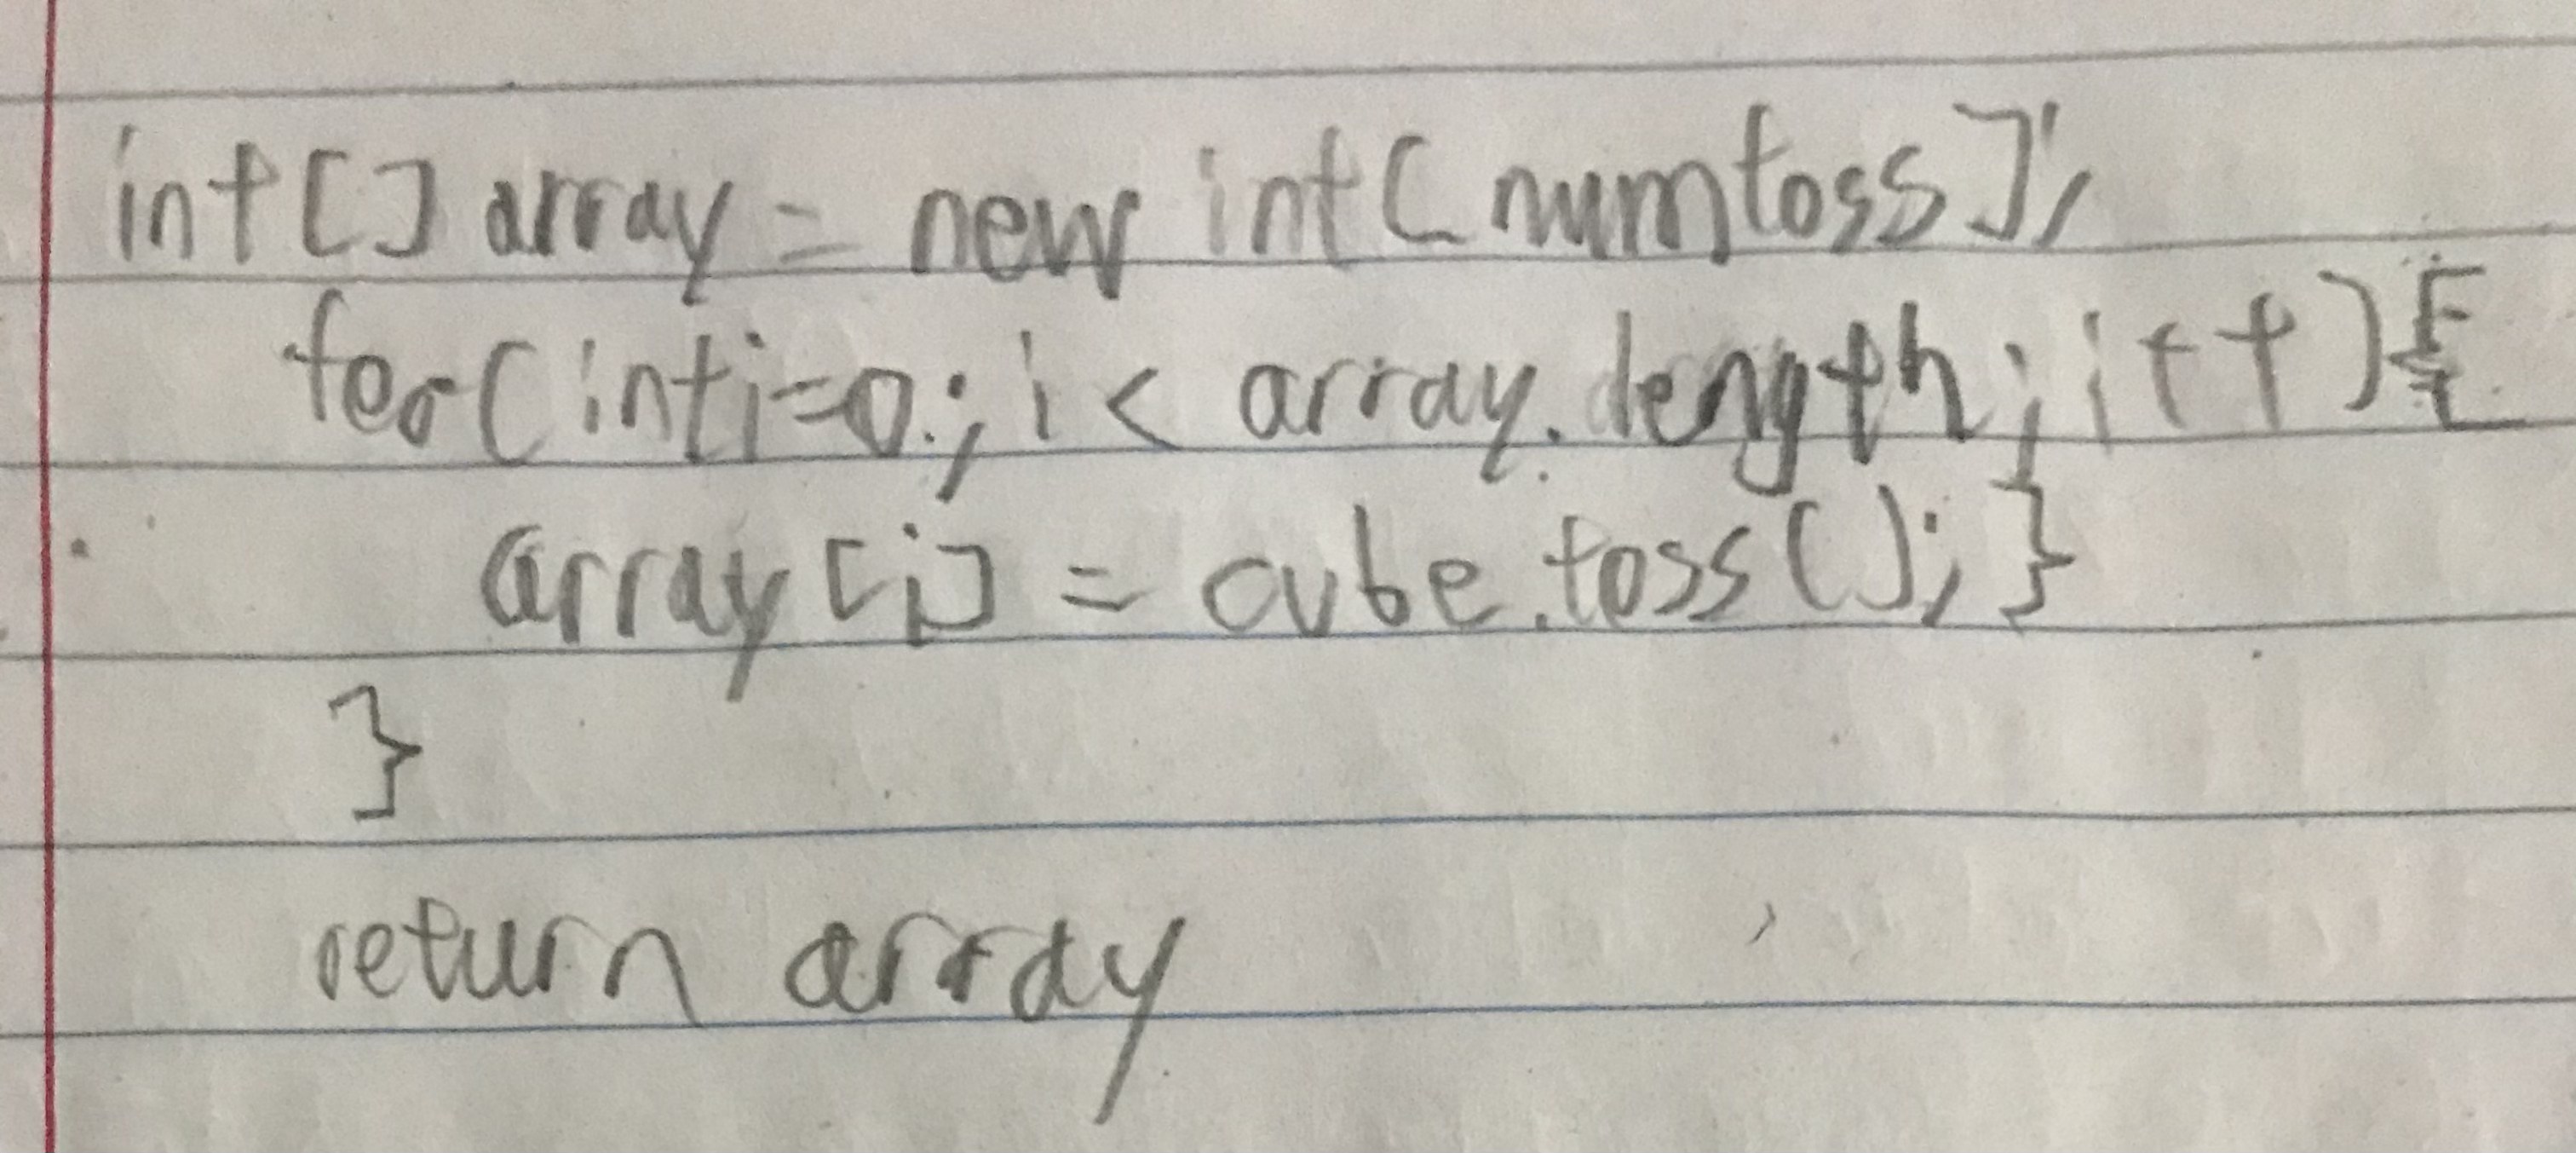 int[] array = new int[numtoss];
for(int i=0; i < array.length; i++){
array[i] = cube.toss(); }
}
return array